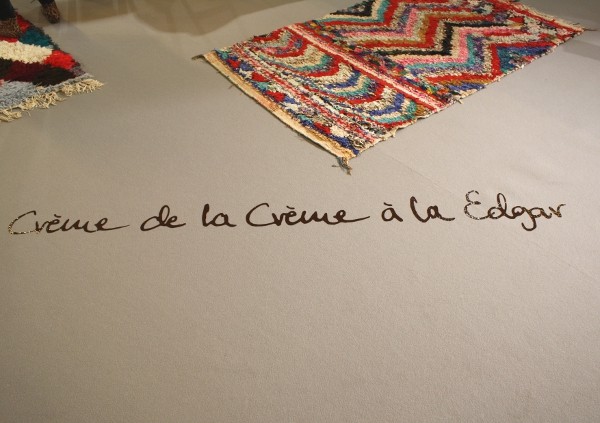 Crème de la Crème à la Edgar